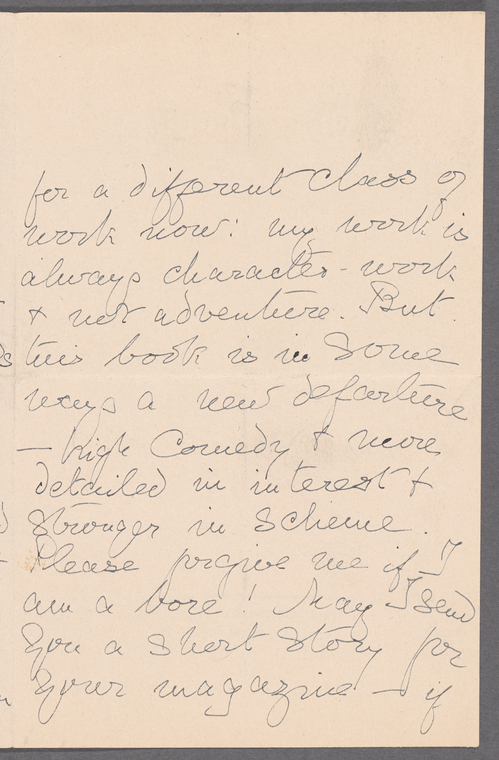 for a different class of
work now: my work is
always character-work
& not adventure. But
this book is in some
ways a new departure
— high Comedy & more
detailed in interest &
stronger in scheme.
Please forgive me if I
am a bore! May I send
you a short story for
your magazine — if